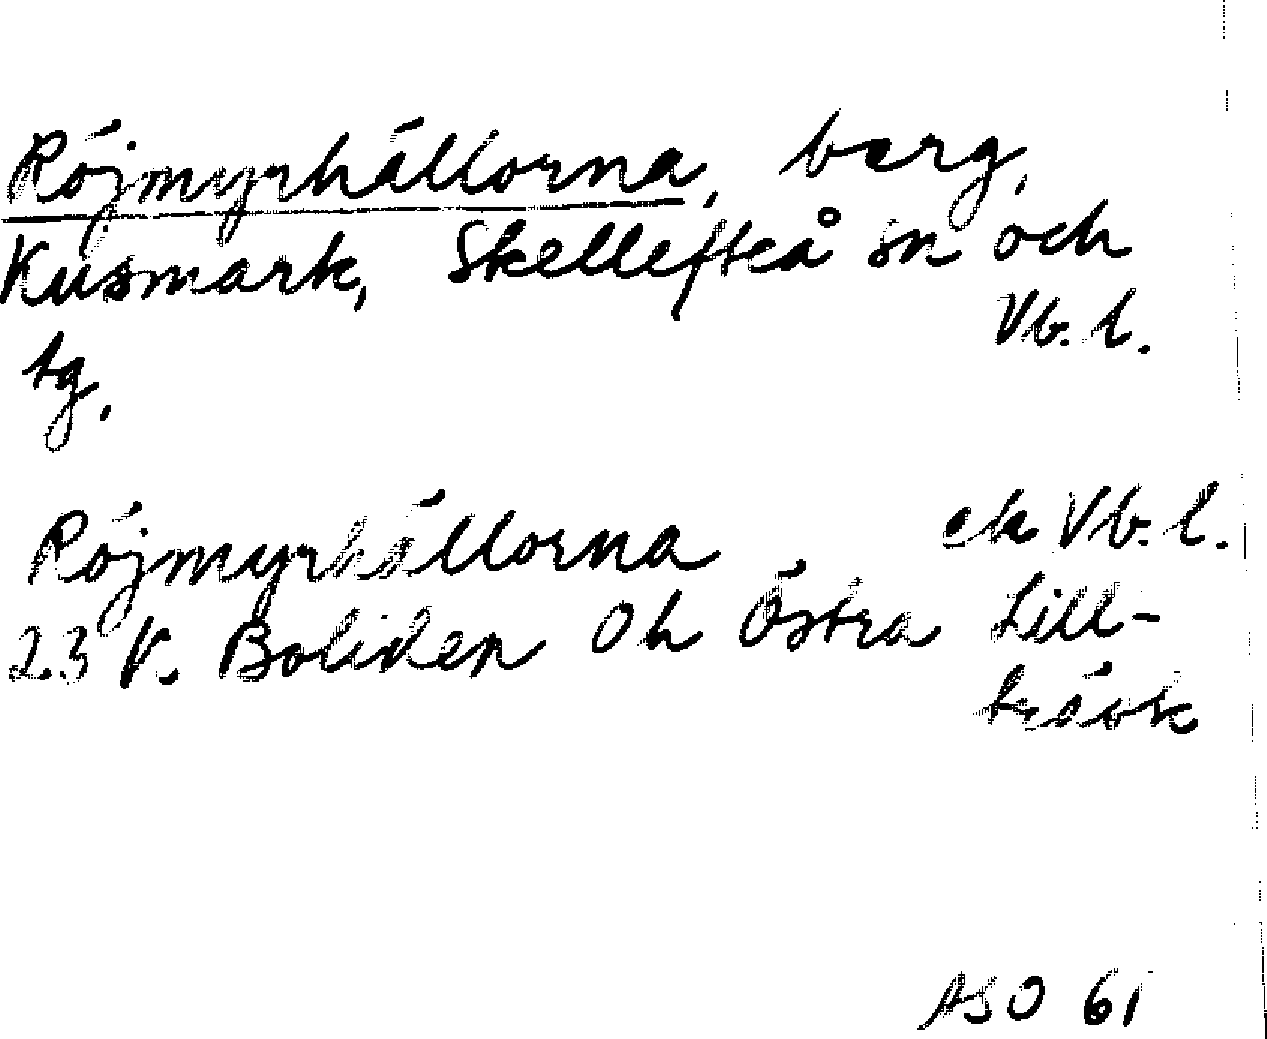 Röjmyrhällorna, berg,
Kusmark, Skellefteå sn och
tg.
Vb. l.
Röjmyrhällorna ek Vb. l.
23 K. Boliden Oh Östra Lill-
träsk
ASO 61